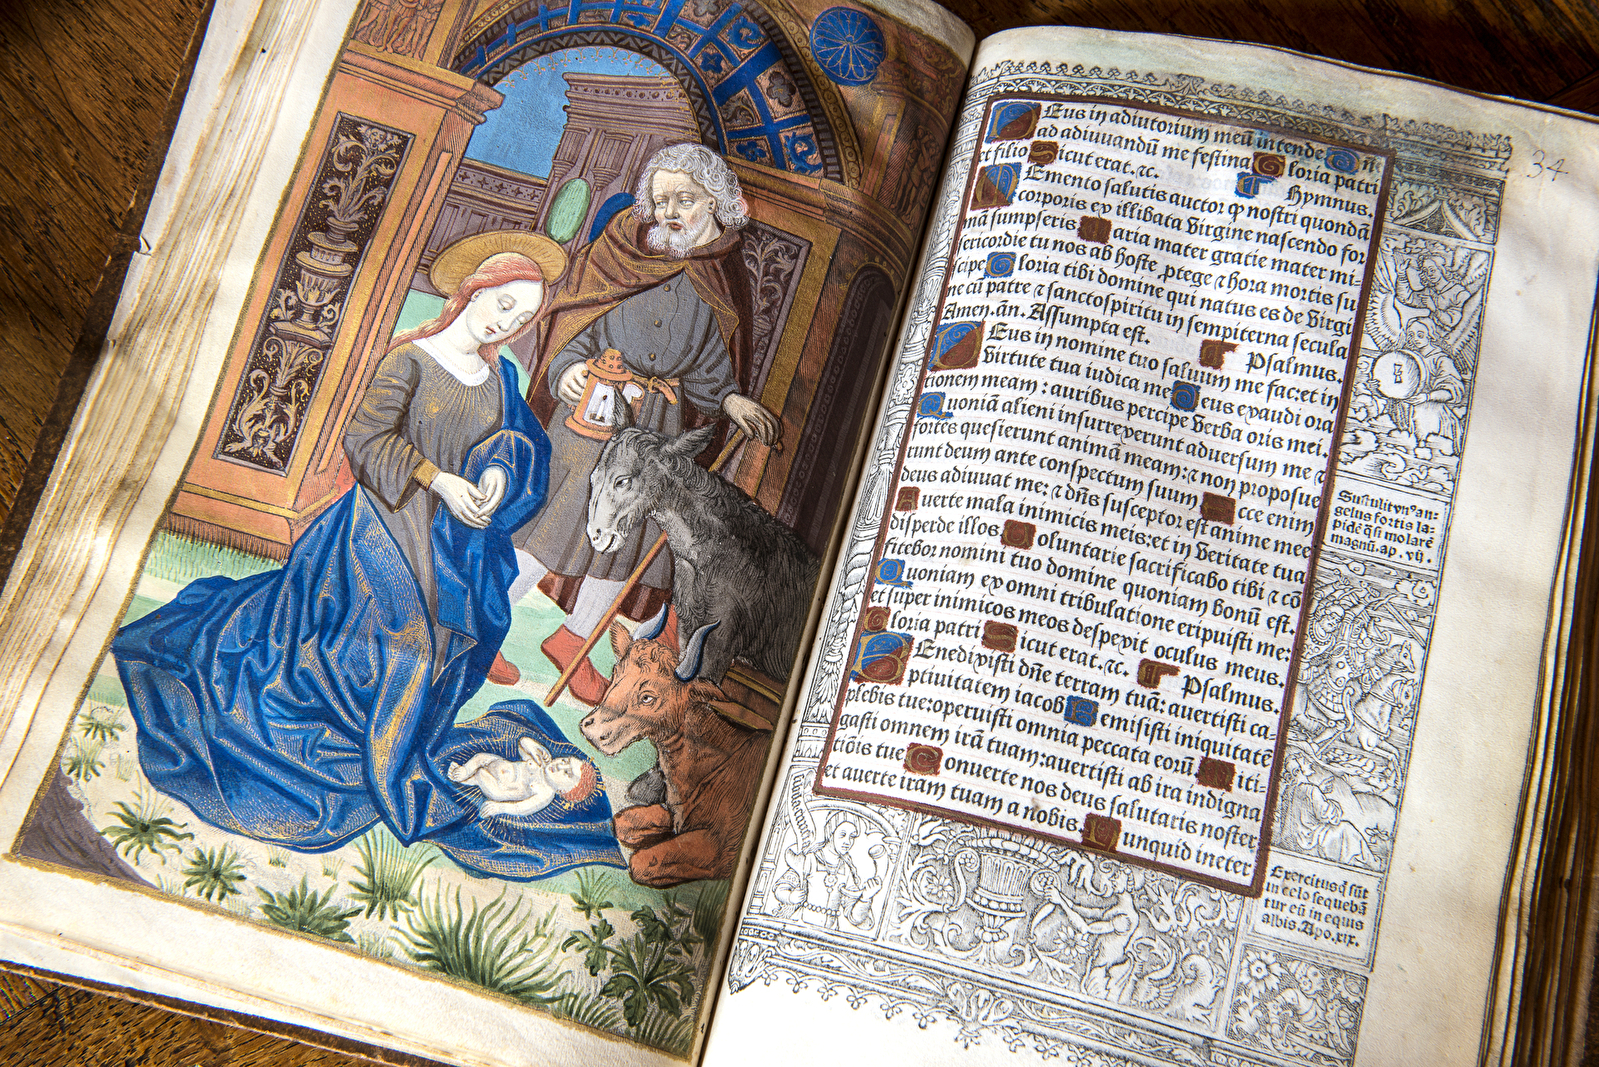 Deus in adiutorium meū intende Dn̄
ad adiuvandū me festina Gloria patri
et filio Sicut erat. ꝛc. Hymnus.
Memento salutis auctor ꝙ nostri quondā
corporis ex illibata virgine nascendo for
mā sumpseris Maria mater gratie mater mi-
sericordie tu nos ab hoste ꝓtege ⁊ hora mortis su
scipe Gloria tibi domine qui natus es de virgi
ne cū patre ⁊ sanctospiritu in sempiterna secula
Amen. añ. Assumpta est. Psalmus.
Deus in nomine tuo saluum me fac: et in
virtute tua iudica me Deus exaudi ora
tionem meam: auribus percipe verba oris mei.
Quoniā alieni insurrexerunt aduersum me ⁊
fortes quesierunt animā meam: ⁊ non proposue
runt deum ante conspectum suum Ecce enim
deus adiuuat me: ⁊ dn̄s susceptor est anime mee
Auerte mala inimicis meis: et in veritate tua
disperde illos Voluntarie sacrificabo tibi ⁊ cō
fitebor nomini tuo domine quoniam bonū est.
Quoniam ex omni tribulatione eripuisti me:
et super inimicos meos despexit oculus meus.
Gloria patri Sicut erat. ꝛc. Psalmus.
Benedixisti dn̄e terram tuā: auertisti ca-
ptiuitatem iacob Remisisti iniquitatē
plebis tue: operuisti omnia peccata eorū Miti-
gasti omnem irā tuam: auertisti ab ira indigna
tiōis tue Conuerte nos deus salutaris noster:
et auerte iram tuam a nobis. Nunquid ineter
34
Sustulit vn⁹ an-
gelus fortis la-
pidē q̄si molarē
magnū. ap.
Exercitus q̄ sūt
in celo sequebā
tur eū in equis
albis. Apo. xix.